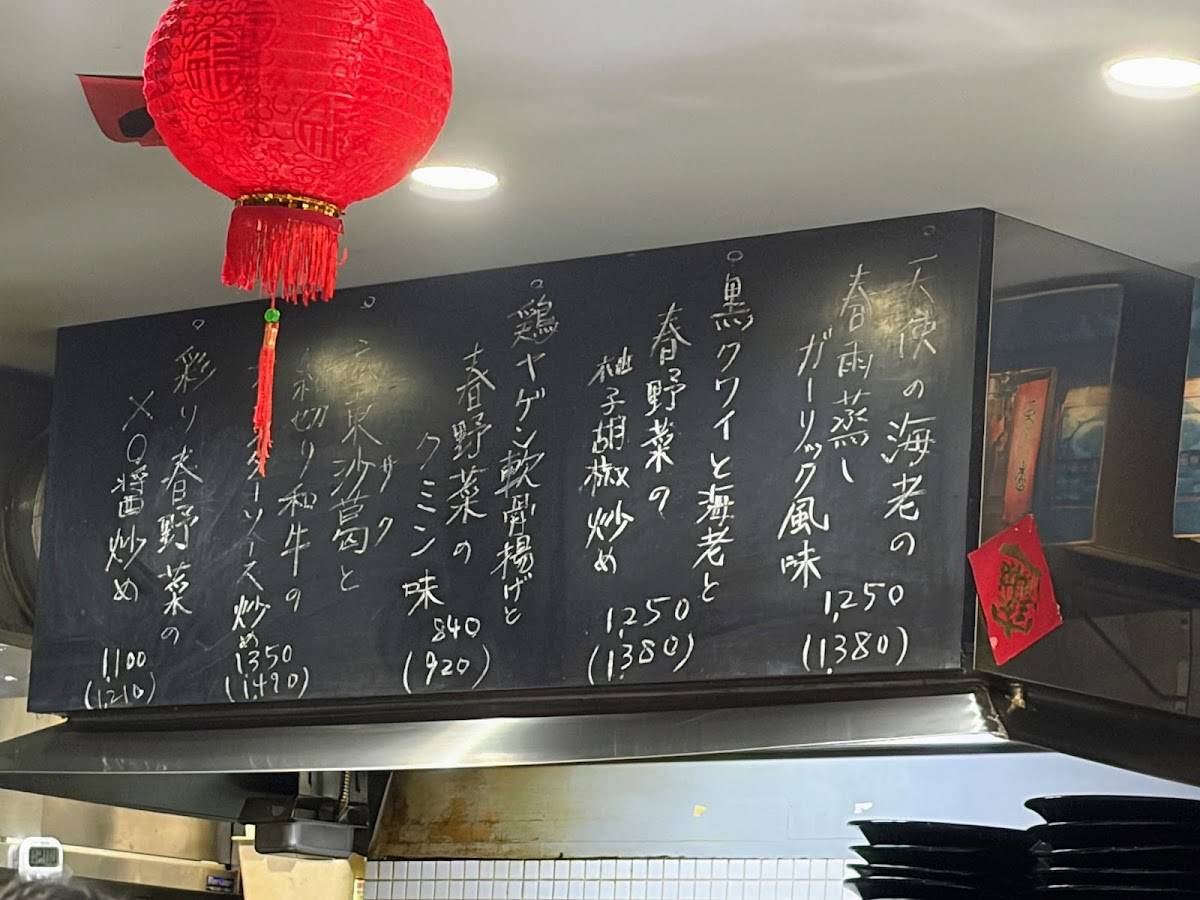 天使の海老の
春雨蒸し
ガーリック風味
1,250
(1,380)
黒クワイと海老と
春野菜の
柚子胡椒炒め
1,250
(1,380)
鶏ヤゲン軟骨揚げと
春野菜の
クミン味
840
(920)
東沙葛と
サク
細切り和牛の
ターソース炒め
1,350
(1,490)
彩り春野菜の
XO醤炒め
1,100
(1,210)